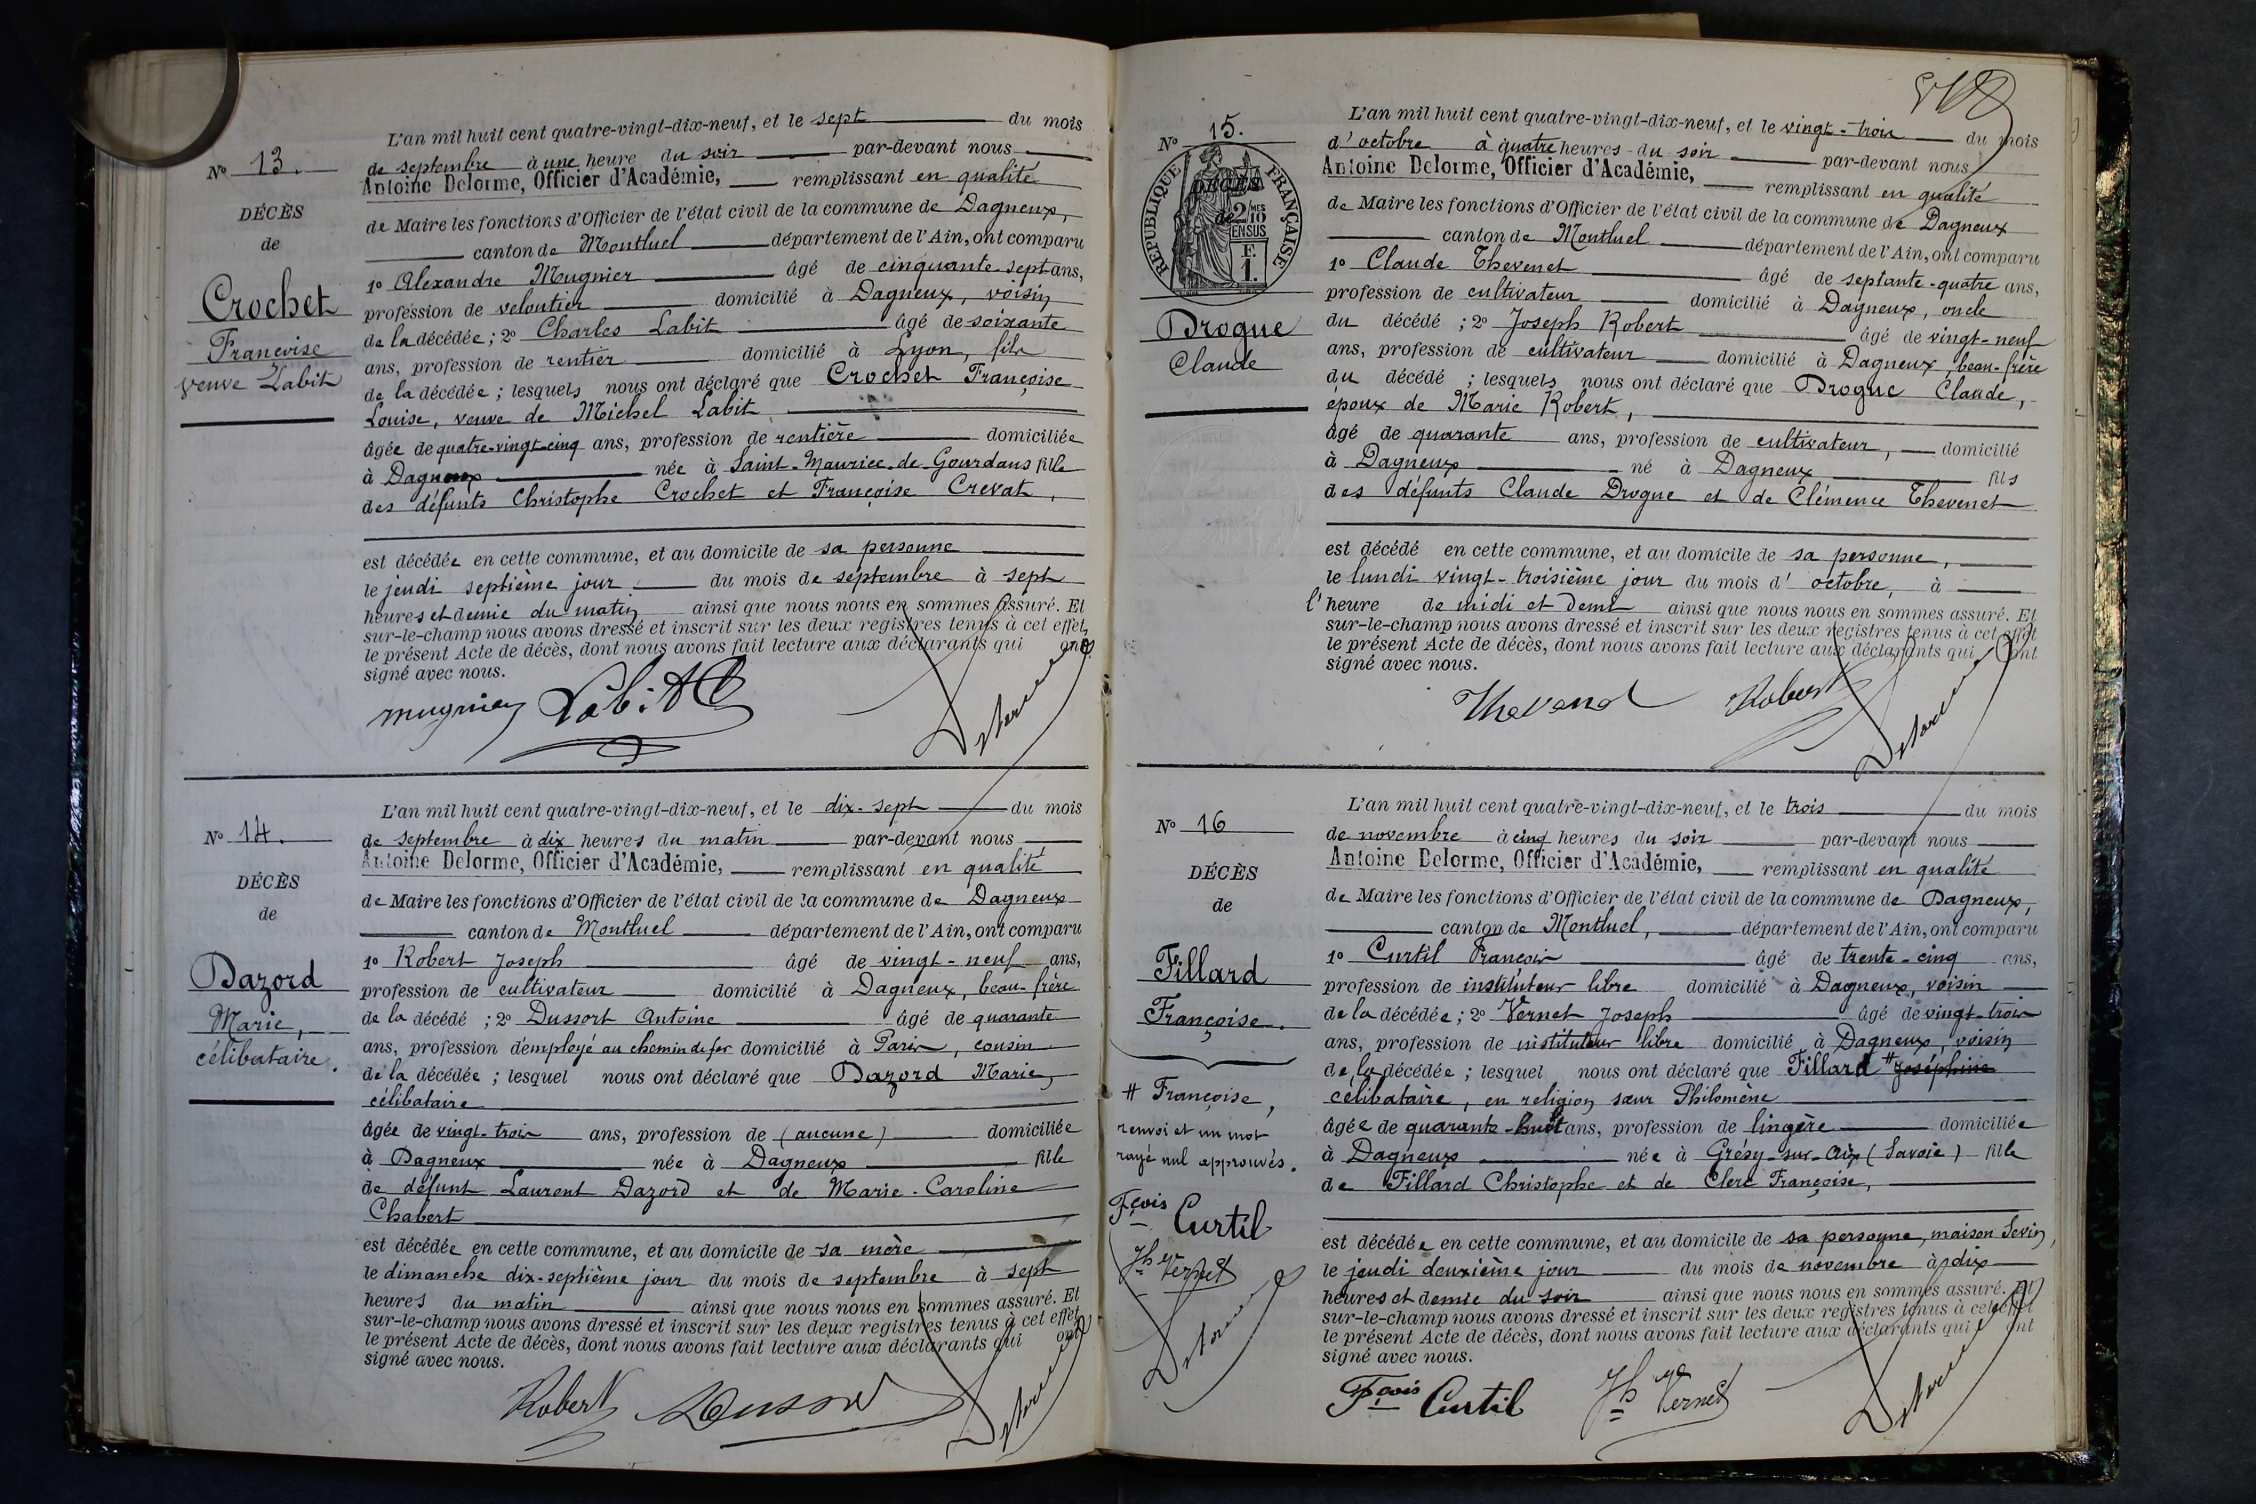 L'an mil huit cent quatre-vingt-dix-neuf, et le sept du mois
No 13.
de septembre à une heure du soir par-devant nous
Antoine Delorme, Officier d'Académie, remplissant en qualité
DÉCÈS
de Maire les fonctions d'Officier de l'état civil de la commune de Dagneux,
de
canton de Montluel département de l'Ain, ont comparu
1o Alexandre Mugnier âgé de cinquante sept ans,
Crochet
profession de veloutier domicilié à Dagneux, voisin
de la décédée; 2o Charles Labit âgé de soixante
Françoise
ans, profession de rentier domicilié à Lyon, fils
veuve Labit
de la décédée; lesquels nous ont déclaré que Crochet Françoise
Louise, veuve de Michel Labit
âgée de quatre-vingt-cinq ans, profession de rentière domiciliée
à Dagneux née à Saint-Maurice-de Gourdans fille
des défunts Christophe Crochet et Françoise Crevat,
est décédée en cette commune, et au domicile de sa personne
le jeudi septième jour du mois de septembre à sept
heures et demie du matin ainsi que nous nous en sommes assuré. Et
sur-le-champ nous avons dressé et inscrit sur les deux registres tenus à cet effet,
le présent Acte de décès, dont nous avons fait lecture aux déclarants qui ont
signé avec nous.
mugnier Labit C Delorme
L'an mil huit cent quatre-vingt-dix-neuf, et le dix-sept du mois
No 14.
de septembre à dix heures du matin par-devant nous
Antoine Delorme, Officier d'Académie, remplissant en qualité
DÉCÈS
de Maire les fonctions d'Officier de l'état civil de la commune de Dagneux
de
canton de Montluel département de l'Ain, ont comparu
1o Robert Joseph âgé de vingt-neuf ans,
Dazord
profession de cultivateur domicilié à Dagneux, beau-frère
Marie,
de la décédé; 2o Dussort Antoine âgé de quarante
célibataire.
ans, profession d'employé au chemin de fer domicilié à Paris, cousin
de la décédée; lesquel nous ont déclaré que Dazord Marie,
célibataire
âgée de vingt-trois ans, profession de (aucune) domiciliée
à Dagneux née à Dagneux fille
de défunt Laurent Dazord et de Marie-Caroline
Chabert
est décédée en cette commune, et au domicile de sa mère
le dimanche dix-septième jour du mois de septembre à sept
heures du matin ainsi que nous nous en sommes assuré. Et
sur-le-champ nous avons dressé et inscrit sur les deux registres tenus à cet effet,
le présent Acte de décès, dont nous avons fait lecture aux déclarants qui ont
signé avec nous.
Robert Dussort Delorme
L'an mil huit cent quatre-vingt-dix-neuf, et le vingt-trois du mois
No 15.
d'octobre à quatre heures du soir par-devant nous
Antoine Delorme, Officier d'Académie, remplissant en qualité
RÉPUBLIQUE FRANÇAISE
DÉCÈS
de
2/10MES
EN SUS
F.
1.
de Maire les fonctions d'Officier de l'état civil de la commune de Dagneux
canton de Montluel département de l'Ain, ont comparu
1o Claude Thevenet âgé de septante-quatre ans,
profession de cultivateur domicilié à Dagneux, oncle
Drogue
du décédé; 2o Joseph Robert âgé de vingt-neuf
Claude
ans, profession de cultivateur domicilié à Dagneux, beau-frère
du décédé; lesquels nous ont déclaré que Drogue Claude,
époux de Marie Robert,
âgé de quarante ans, profession de cultivateur, domicilié
à Dagneux né à Dagneux fils
des défunts Claude Drogue et de Clémence Thevenet
est décédé en cette commune, et au domicile de sa personne,
le lundi vingt-troisième jour du mois d'octobre, à
l'heure de midi et demi ainsi que nous nous en sommes assuré. Et
sur-le-champ nous avons dressé et inscrit sur les deux registres tenus à cet effet
le présent Acte de décès, dont nous avons fait lecture aux déclarants qui ont
signé avec nous.
Thevenet Robert Delorme
L'an mil huit cent quatre-vingt-dix-neuf, et le trois du mois
No 16
de novembre à cinq heures du soir par-devant nous
Antoine Delorme, Officier d'Académie, remplissant en qualité
DÉCÈS
de Maire les fonctions d'Officier de l'état civil de la commune de Dagneux,
de
canton de Montluel, département de l'Ain, ont comparu
1o Curtil François âgé de trente-cinq ans,
Fillard
profession de instituteur libre domicilié à Dagneux, voisin
Françoise.
de la décédée; 2o Vernet Joseph âgé de vingt-trois
ans, profession de instituteur libre domicilié à Dagneux, voisin
de la décédée; lesquel nous ont déclaré que Fillard # Joséphine
# Françoise,
célibataire, en religion sœur Philomène
renvoi et un mot
âgée de quarante-huit ans, profession de lingère domiciliée
rayé nul approuvés.
à Dagneux née à Grésy-sur-Aix (Savoie) fille
de Fillard Christophe et de Clerc Françoise,
Fçois Curtil
Jh Vernet
Delorme
est décédée en cette commune, et au domicile de sa personne, maison Sevin,
le jeudi deuxième jour du mois de novembre à dix
heures et demie du soir ainsi que nous nous en sommes assuré. Et
sur-le-champ nous avons dressé et inscrit sur les deux registres tenus à cet effet
le présent Acte de décès, dont nous avons fait lecture aux déclarants qui ont
signé avec nous.
Fçois Curtil Jh Vernet Delorme